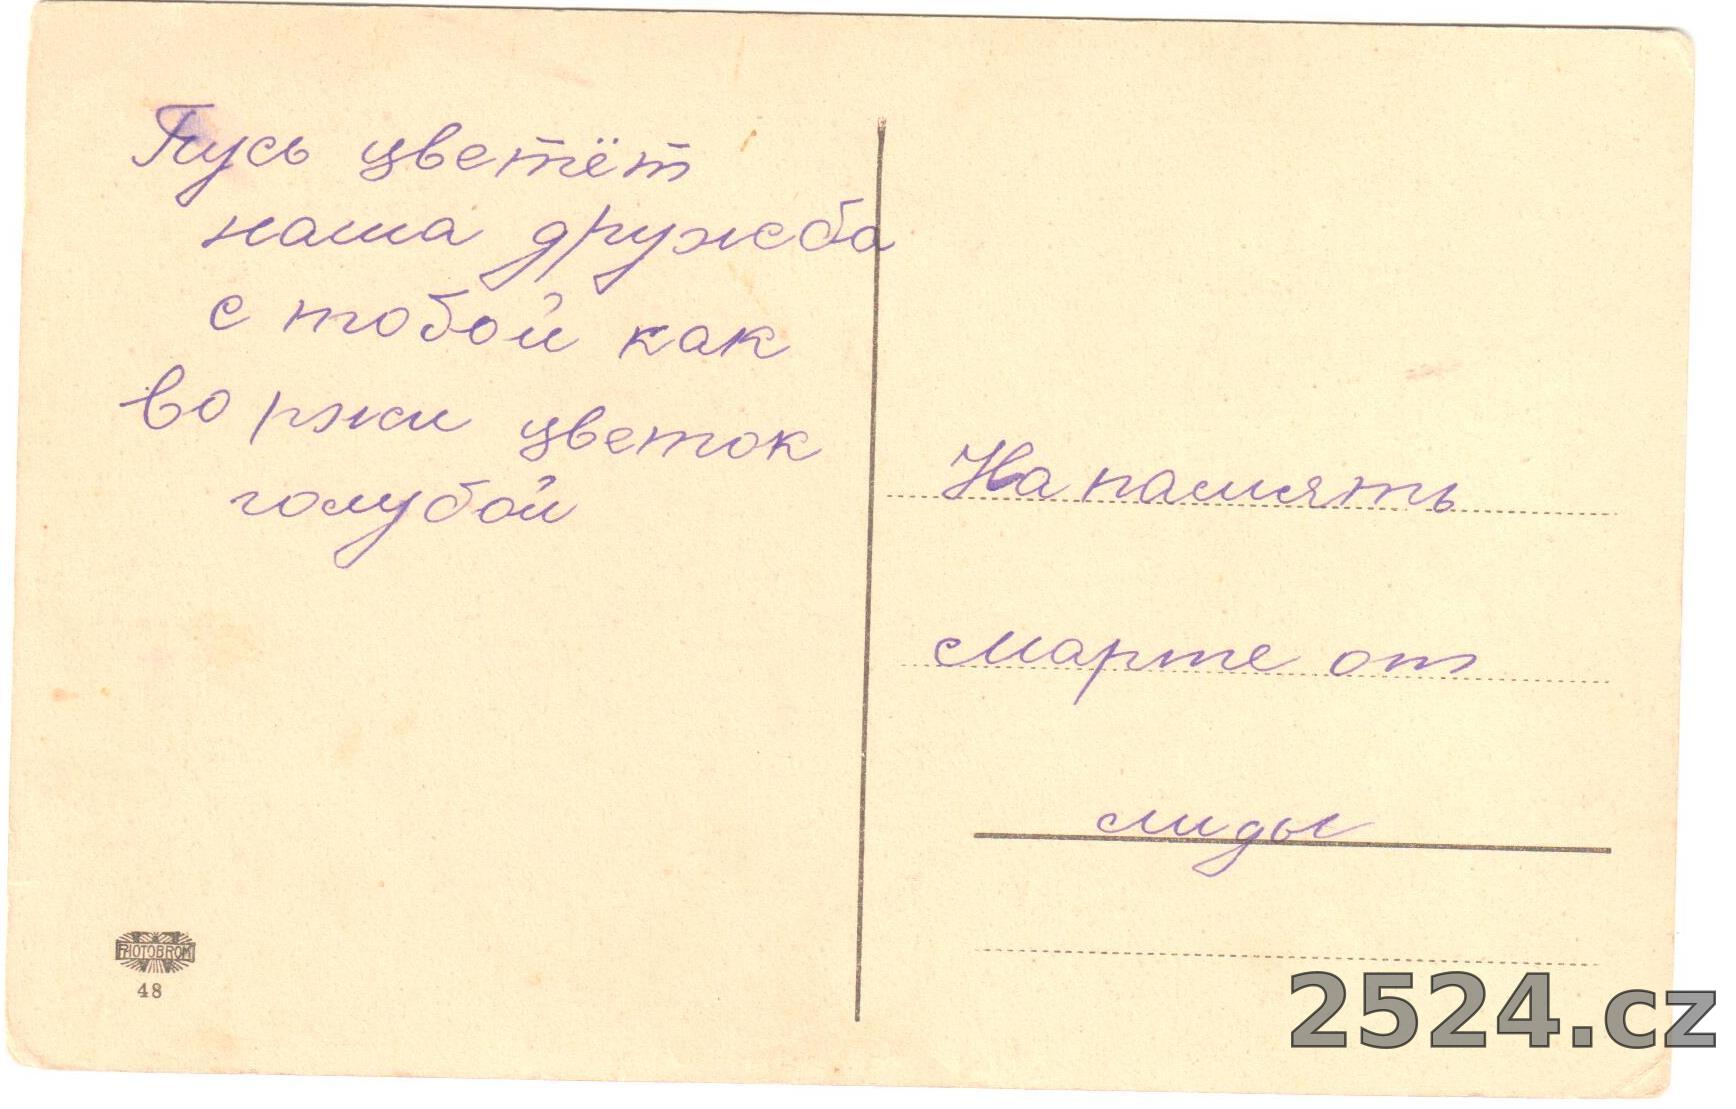 Пусь цветёт
наша дружба
с тобой как
во ржи цветок
голубой
На память
Марте от
Лиды
PHOTOBROM
48
2524.cz